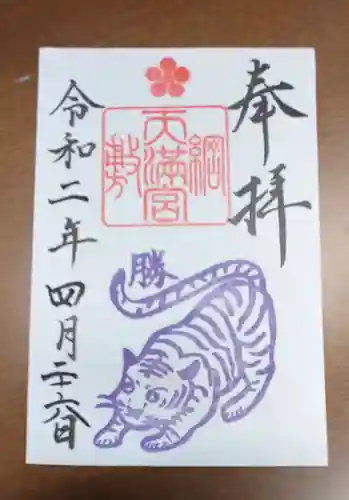 奉拝
綱敷天満宮
勝
令和二年四月二十六日